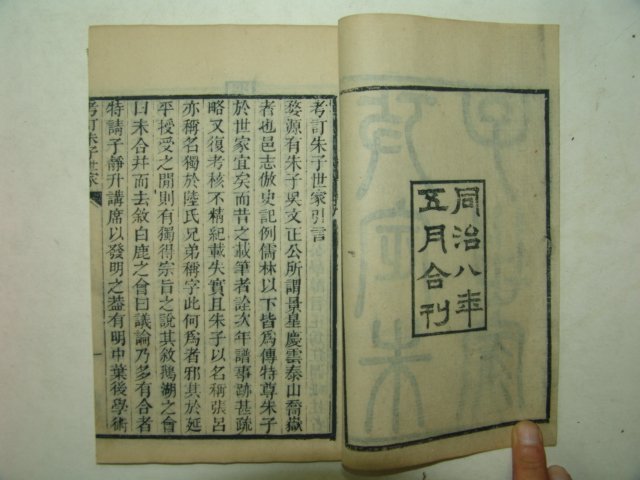 同治八年
五月合刊
考訂朱子世家引言
婺源有朱子吴文正公所謂景星慶雲泰山喬嶽
者也邑志倣史記例儒林以下皆爲傳特尊朱子
於世家宜矣而昔之載筆者詮次年譜事跡甚疏
略又復考核不精紀載失實且朱子以名稱張呂
亦稱名獨於陸氏兄弟稱字此何爲者邪其於延
平授受之閒則有獨得宗旨之說其敘鵝湖之會
曰未合并而去敘白鹿之會曰議論乃多有合者
特請子靜升講席以發明之葢有明中葉後學術
考訂朱子世家